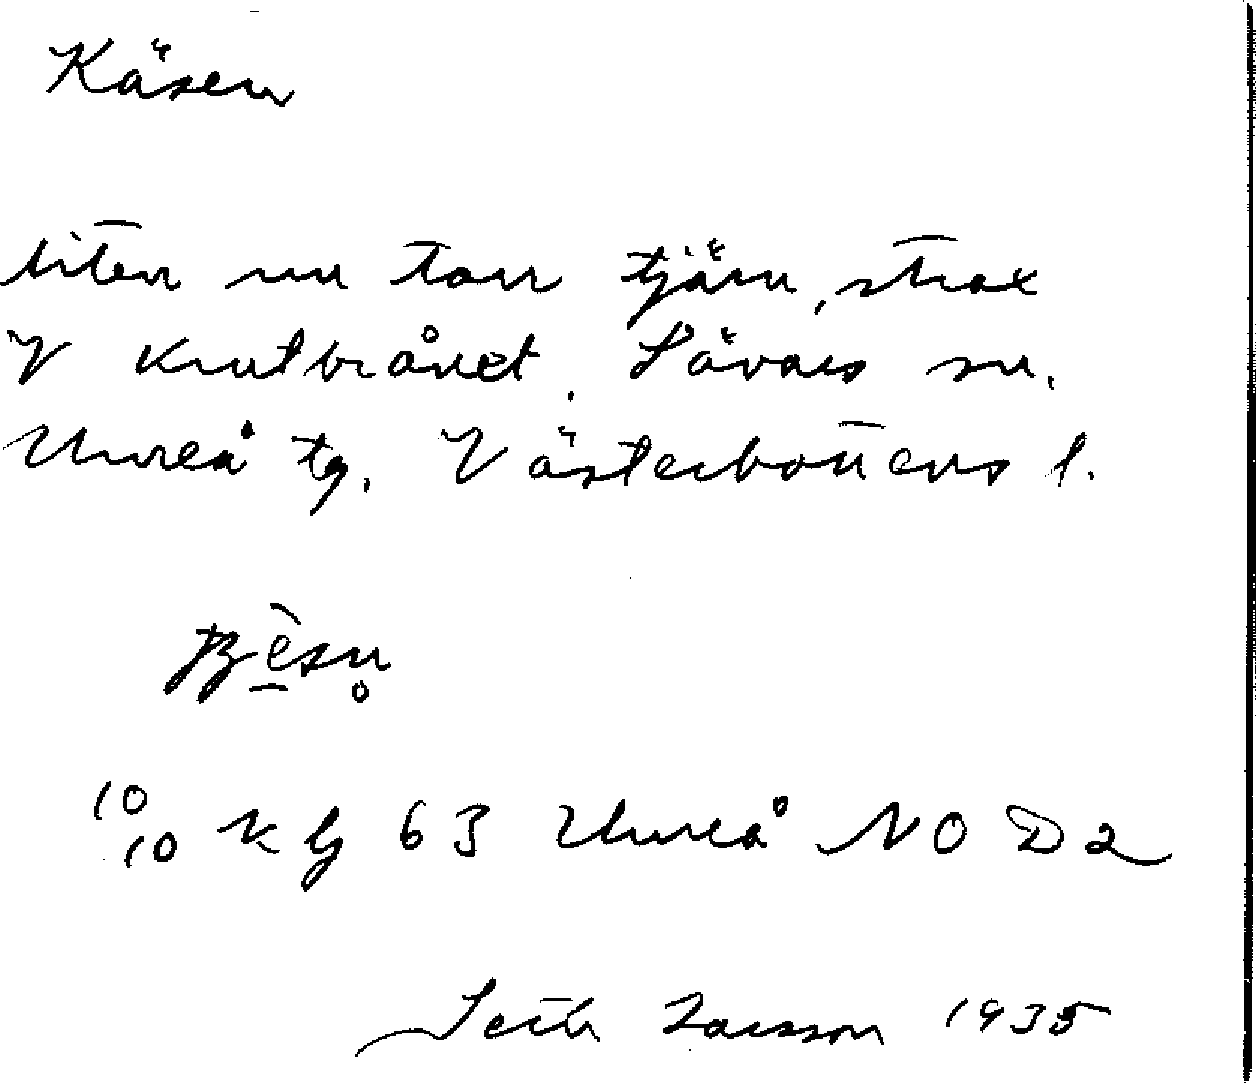 Käsen
liten nu torr tjärn, strax
V Krutbrånet. Sävars sn.
Umeå tg. Västerbottens l.
10/10 kbl 63 Umeå NO D2
Seth Larsson 1935